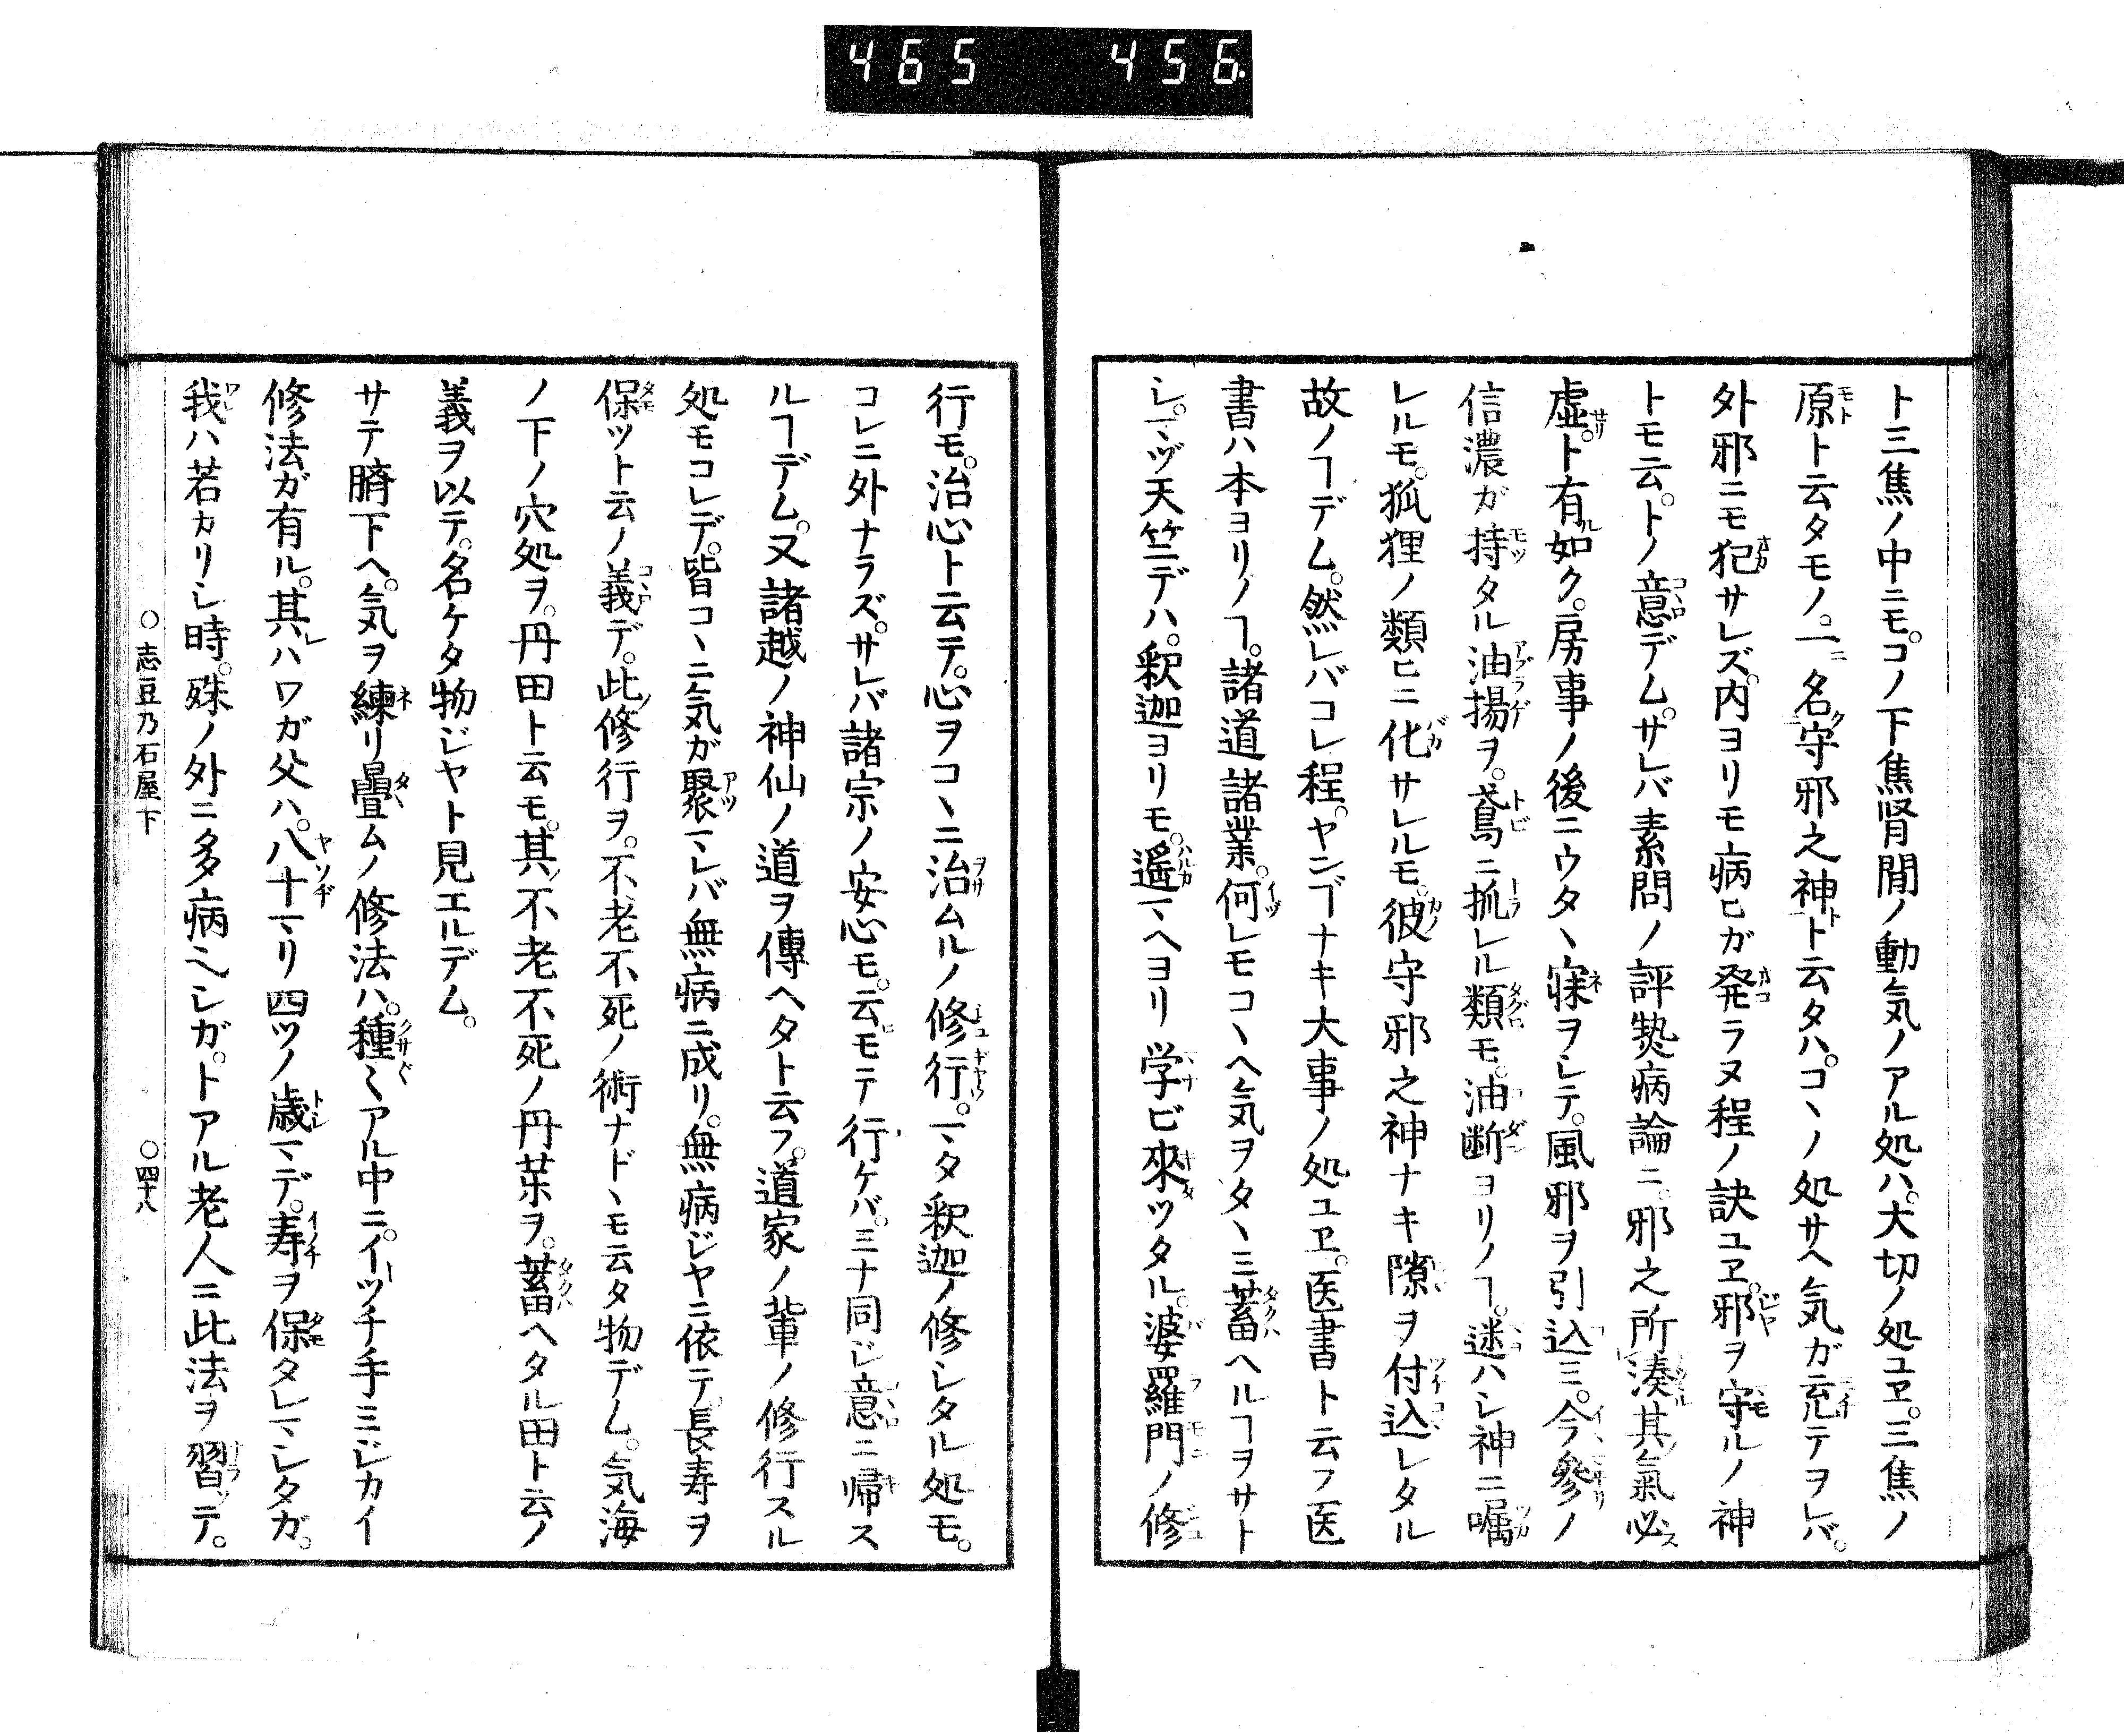 465 456
ト三焦ノ中ニモ。コノ下焦腎間ノ動気ノアル処ハ。大切ノ処ユヱ。三焦ノ
原ト云タモノ。一ニ名守邪之神ト云タハ。コヽノ処サヘ気ガ充テヲレバ。
外邪ニモ犯サレズ。内ヨリモ病ヒガ発ラヌ程ノ訣ユヱ。邪ヲ守ルノ神
トモ云。トノ意デム。サレバ素問ノ評熱病論ニ。邪之所湊其氣必
虚。ト有如ク。房事ノ後ニウタヽ寐ヲシテ。風邪ヲ引込ミ。今参ノ
信濃ガ持タル油揚ヲ。鳶ニ抓レル類モ。油断ヨリノヿ。迷ハシ神ニ嘱
レルモ。狐狸ノ類ヒニ化サレルモ。彼守邪之神ナキ隙ヲ付込レタル
故ノヿデム。然レバコレ程。ヤンゴナキ大事ノ処ユヱ。医書ト云フ医
書ハ本ヨリノヿ。諸道諸業。何レモコヽヘ気ヲタヽミ蓄ヘルヿヲサト
シ。マヅ天竺デハ。釈迦ヨリモ。遥マヘヨリ学ビ來ツタル。婆羅門ノ修
行モ。治心ト云テ。心ヲコヽニ治ムルノ修行。マタ釈迦ノ修シタル処モ。
コレニ外ナラズ。サレバ諸宗ノ安心モ。云モテ行ケバ。ミナ同じ意ニ帰ス
ルヿデム。又諸越ノ神仙ノ道ヲ傳ヘタト云フ。道家ノ輩ノ修行スル
処モコレデ。皆コヽニ気ガ聚マレバ無病ニ成リ。無病ジヤニ依テ。長寿ヲ
保ツト云ノ義デ。此修行ヲ。不老不死ノ術ナドヽモ云タ物デム。気海
ノ下ノ穴処ヲ。丹田ト云モ。其不老不死ノ丹薬ヲ。蓄ヘタル田ト云ノ
義ヲ以テ。名ケタ物ジヤト見エルデム。
サテ臍下ヘ。気ヲ練リ疊ムノ修法ハ。種〻アル中ニ。イツチ手ミジカイ
修法ガ有ル。其ハワガ父ハ。八十マリ四ツノ歳マデ。寿ヲ保タレマシタガ。
我ハ若カリシ時。殊ノ外ニ多病ヘシガ。トアル老人ニ此法ヲ習テ。
○志豆乃石屋下 ○四十八